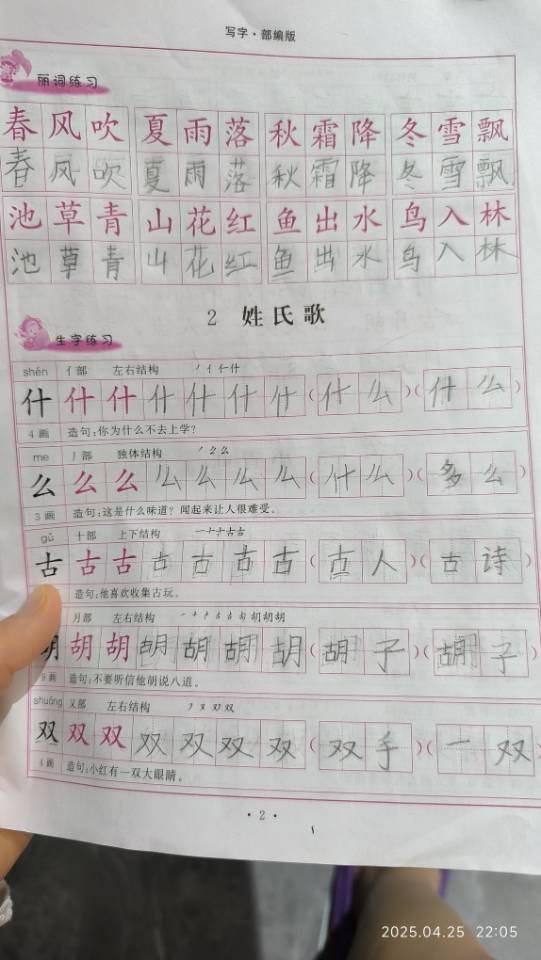 写字·部编版
丽词练习
春风吹 夏雨落 秋霜降 冬雪飘
春风吹 夏雨落 秋霜降 冬雪飘
池草青 山花红 鱼出水 鸟入林
池草青 山花红 鱼出水 鸟入林
2 姓氏歌
生字练习
shén 亻部 左右结构 丿亻仁什
什 什 什 什 什 什 什 (什么)(什么)
4画 造句:你为什么不去上学?
me 丿部 独体结构 丿么么
么 么 么 么 么 么 么 (什么)(多么)
3画 造句:这是什么味道?闻起来让人很难受。
gǔ 十部 上下结构 一十十古古
古 古 古 古 古 古 古 (古人)(古诗)
造句:他喜欢收集古玩。
月部 左右结构
胡 胡 胡 胡 胡 胡 胡 (胡子)(胡子)
9画 造句:不要听信他胡说八道。
shuāng 又部 左右结构 フ又双双
双 双 双 双 双 双 双 (双手)(一双)
4画 造句:小红有一双大眼睛。
·2·
2025.04.25 22:05